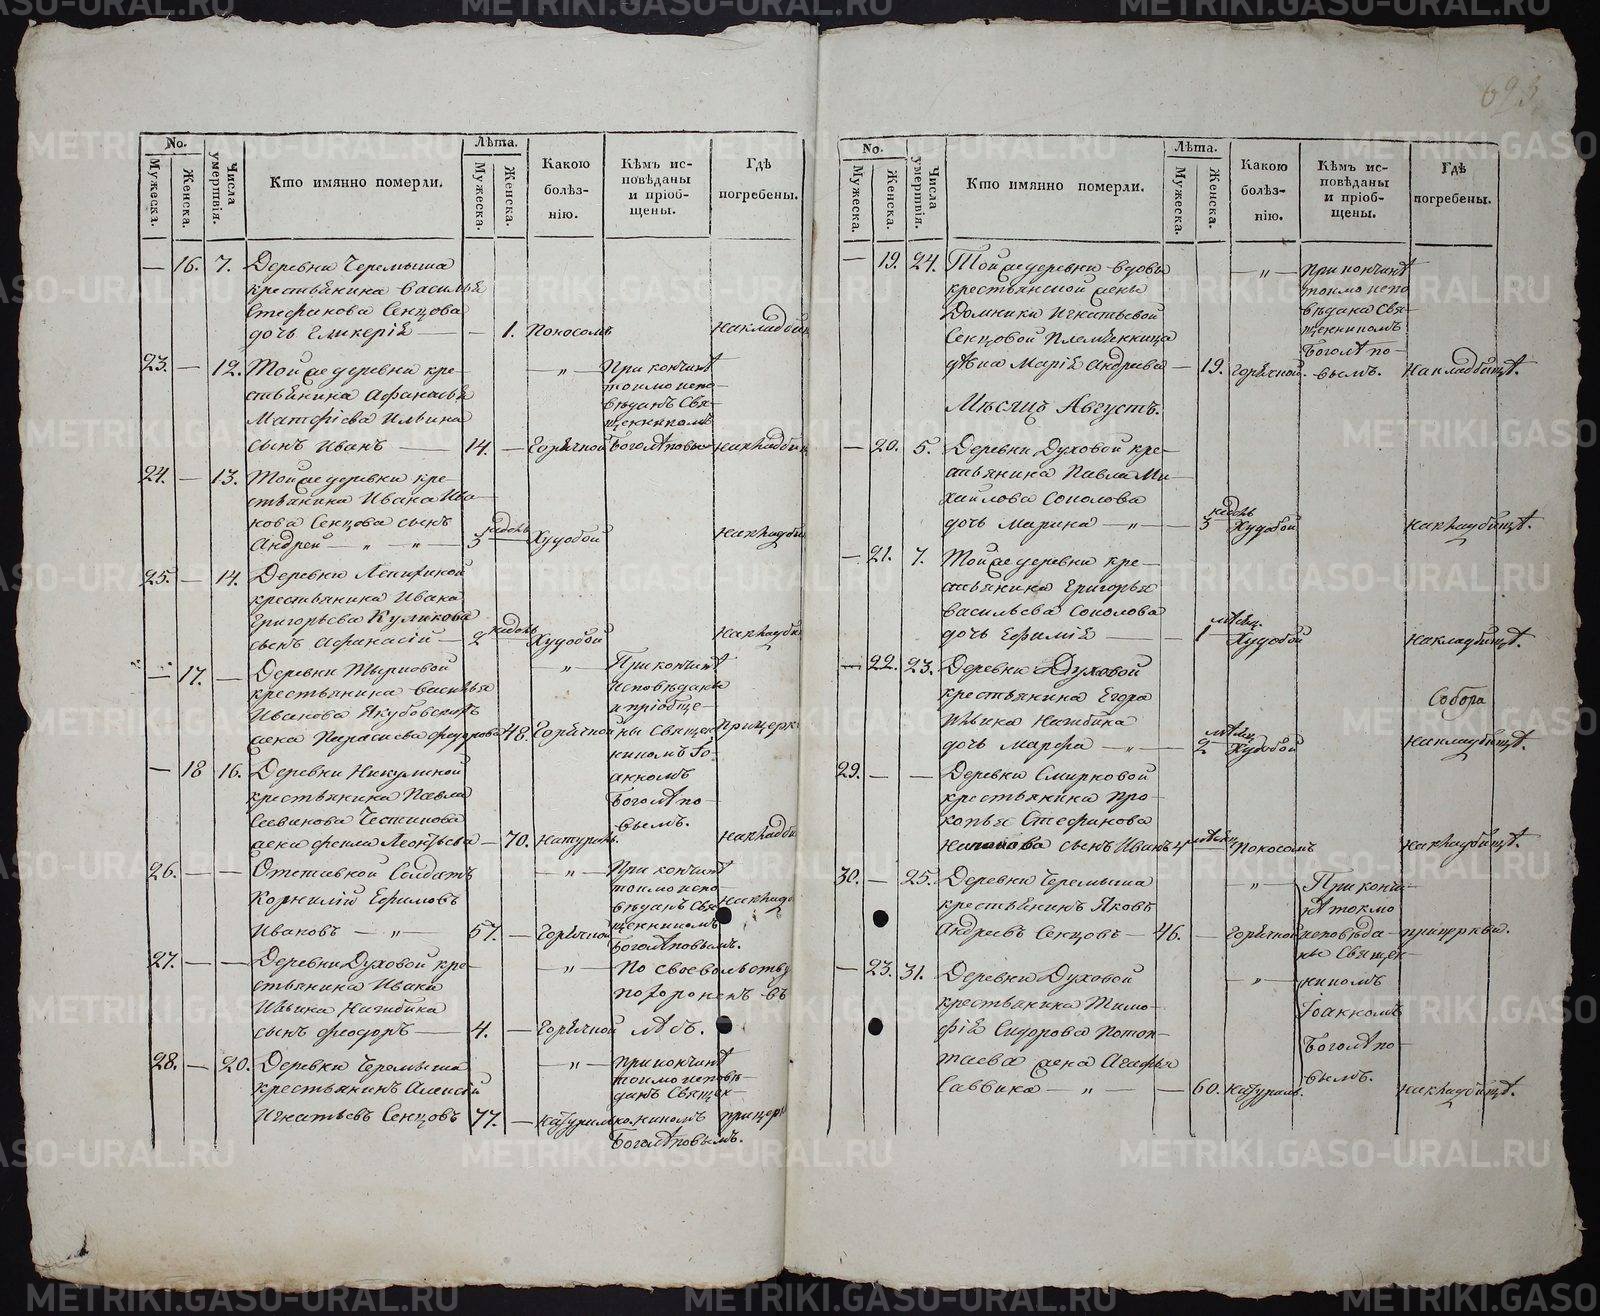 693
No.
Мужеска.
Женска.
Числа умертвія.
Кто имянно померли.
Лѣта.
Мужеска.
Женска.
Какою болѣзнію.
Кѣмъ исповѣданы и пріобщены.
Гдѣ погребены.
— 16. 7. Деревни Черемыша
крестьянина Василья
Стефанова Сенцова
дочь Гликерія — — 1. Поносомъ
23. — 12. Той же деревни кре-
стьянина Афанасья
Матфіева Ильина
сынъ Иванъ — 14. — Горячной
При кончинѣ
токмо испо-
вѣданъ Свя-
щенникомъ
24. — 13. Той же деревни кре-
стьянина Ивана Ива-
нова Сенцова сынъ
Андрей — „ — „ — 3 недель Худобой
25. — 14. Деревни
крестьянина Ивана
Григорьева Куликова
сынъ Афанасій — 2 недель Худобой
— 17. — Деревни
крестьянина Василья
Иванова
жена Парасковья Федорова 48. Горячной
При кончинѣ
исповѣдана
и пріобще-
ны Священ-
никомъ Іо-
анномъ
Боголѣпо-
вымъ.
— 18 16. Деревни Никулиной
крестьянина Павла
жена Фекла Леонтьева — 70. Натураль.
26. — — Отставной Солдатъ
Корнилій Ефимовъ
Ивановъ — „ — 57. — Горячной
При кончинѣ
токмо испо-
вѣданъ Свя-
щенникомъ
Боголѣповымъ.
27. — — Деревни Духовой кре-
стьянина Ивана
Ильина Нагибина
сынъ Феодоръ — 4. — Горячной
— „ — По своевольству
похороненъ въ
лѣсѣ.
28. — 20. Деревни Черемыша
крестьянинъ Алексѣй
Игнатьевъ Сенцовъ 77. — Натуральн.
При кончинѣ
токмо исповѣ-
данъ Священ-
никомъ
Боголѣповымъ.
No.
Мужеска.
Женска.
Числа умертвія.
Кто имянно померли.
Лѣта.
Мужеска.
Женска.
Какою болѣзнію.
Кѣмъ исповѣданы и пріобщены.
Гдѣ погребены.
— 19. 24. Той же деревни вдовы
крестьянской жены
Домники Игнатьевой
Сенцовой Племянница
дѣвка Марія Андреева — 19. Горячной.
При кончинѣ
токмо испо-
вѣдана Свя-
щенникомъ
Боголѣпо-
вымъ. На кладбищѣ.
Мѣсяцъ Августъ.
— 20. 5. Деревни Духовой кре-
стьянина Павла Ми-
хайлова Соколова
дочь Марина — „ — — 3 недель Худобой На кладбищѣ.
— 21. 7. Той же деревни кре-
стьянина Григорья
Васильева Соколова
дочь Ефимія — — 1 мѣсяц. Худобой На кладбищѣ.
— 22. 23. Деревни Духовой
крестьянина Егора
Ильина Нагибина
дочь Марфа — „ — — 2 мѣсяц. Худобой На кладбищѣ.
Собора
29. — — Деревни Смирновой
крестьянина Про-
копья Стефанова
сынъ Иванъ 4 Поносомъ На кладбищѣ.
30. — 25. Деревни Черемыша
крестьянинъ Яковъ
Андреевъ Сенцовъ — 46. — Горячной
При кончи-
нѣ токмо
исповѣда-
ны Священ-
никомъ
Іоанномъ
Боголѣпо-
вымъ.
при церкви.
— 23. 31. Деревни Духовой
крестьянина Тимо-
фія Сидорова Потоп-
таева жена Агафья
Саввина — „ — 60. Натураль. На кладбищѣ.
METRIKI.GASO-URAL.RU